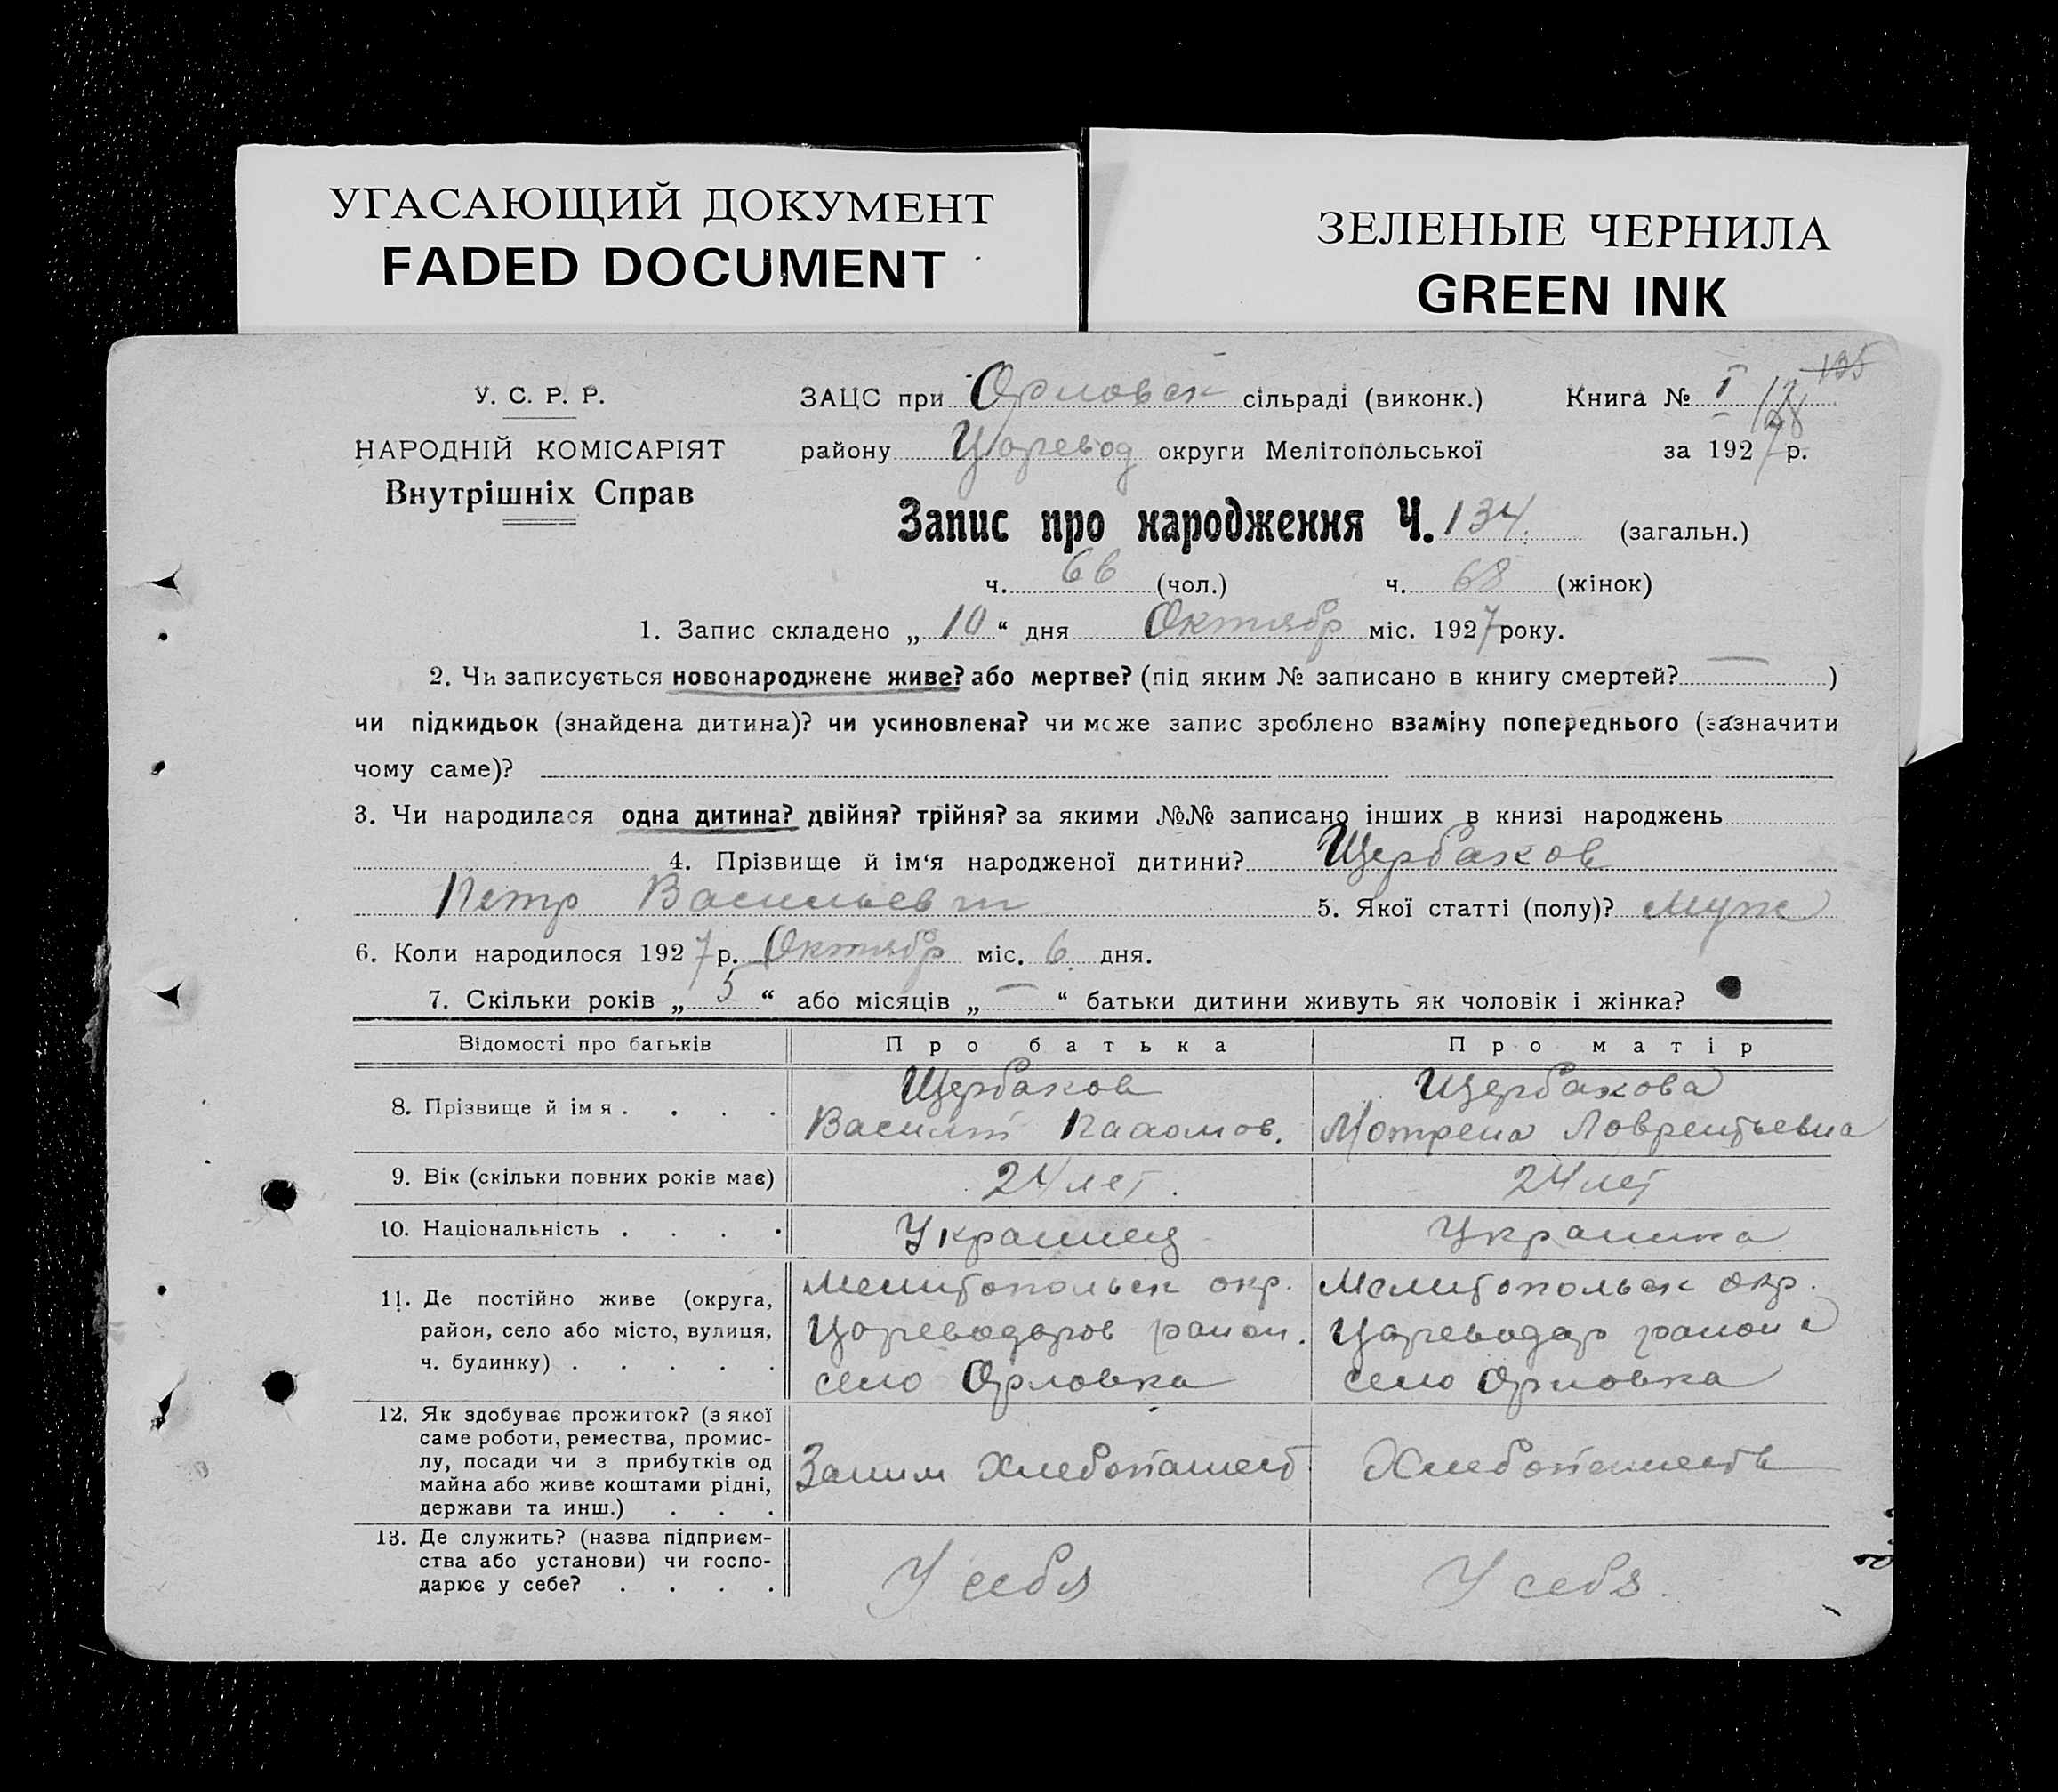 УГАСАЮЩИЙ ДОКУМЕНТ
FADED DOCUMENT
ЗЕЛЕНЫЕ ЧЕРНИЛА
GREEN INK
135
128
У. С. Р. Р.
НАРОДНІЙ КОМІСАРІЯТ
Внутрішніх Справ
ЗАЦС при Орловск сільраді (виконк.) Книга № I
району Царевод округи Мелітопольської за 1927 р.
Запис про народження Ч. 134. (загальн.)
ч. 66 (чол.) ч. 68 (жінок)
1. Запис складено „ 10 “ дня Октябр міс. 1927 року.
2. Чи записується новонароджене живе? або мертве? (під яким № записано в книгу смертей? — )
чи підкидьок (знайдена дитина)? чи усиновлена? чи може запис зроблено взаміну попереднього (зазначити
чому саме)?
3. Чи народилася одна дитина? двійня? трійня? за якими №№ записано інших в книзі народжень
4. Прізвище й ім‘я народженої дитини? Щербаков
Петр Васильевич 5. Якої статті (полу)? Муж
6. Коли народилося 1927 р. Октябр міс. 6. дня.
7. Скільки років „ 5 “ або місяців „ — “ батьки дитини живуть як чоловік і жінка?
Відомості про батьків Про батька Про матір
8. Прізвище й імя . . . . Щербаков Щербакова
Василий Мотрена Лаврентьевна
9. Вік (скільки повних років має) 24 лет. 24 лет
10. Національність . . . . Украинец Украинка
11. Де постійно живе (округа, Мелитопольск окр. Мелитопольск окр.
район, село або місто, вулиця, Цареводаров район. Цареводар района
ч. будинку) . . . . . село Орловка село Орловка
12. Як здобуває прожиток? (з якої
саме роботи, ремества, промис-
лу, посади чи з прибутків од Заним Хлебопашест Хлебопашеств
майна або живе коштами рідні,
держави та инш.) . . .
13. Де служить? (назва підприєм-
ства або установи) чи госпо- У себя У себя.
дарює у себе? . . . .